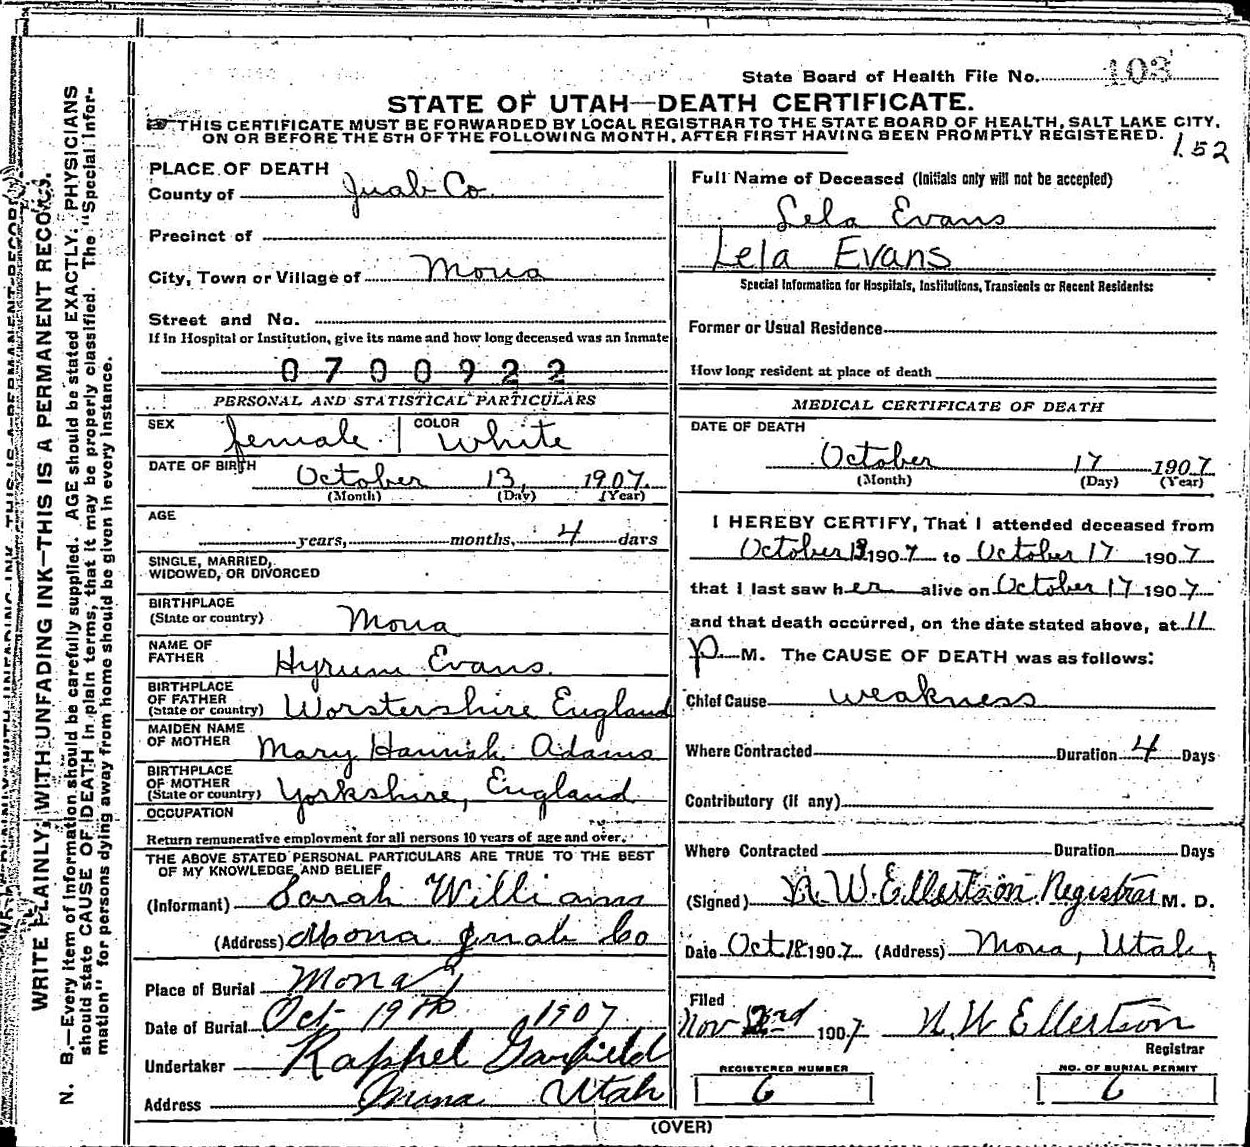 State Board of Health File No. 103
STATE OF UTAH—DEATH CERTIFICATE.
THIS CERTIFICATE MUST BE FORWARDED BY LOCAL REGISTRAR TO THE STATE BOARD OF HEALTH, SALT LAKE CITY,
ON OR BEFORE THE 5TH OF THE FOLLOWING MONTH, AFTER FIRST HAVING BEEN PROMPTLY REGISTERED.
152
WRITE PLAINLY, WITH UNFADING INK—THIS IS A PERMANENT RECORD.
N. B.—Every item of information should be carefully supplied. AGE should be stated EXACTLY. PHYSICIANS
should state CAUSE OF DEATH in plain terms, that it may be properly classified. The "Special Infor-
mation" for persons dying away from home should be given in every instance.
PLACE OF DEATH
County of Juab Co.
Precinct of
City, Town or Village of Mona
Street and No.
If in Hospital or Institution, give its name and how long deceased was an inmate
0700922
PERSONAL AND STATISTICAL PARTICULARS
SEX female COLOR White
DATE OF BIRTH October 13, 1907.
(Month) (Day) (Year)
AGE
years, months, 4 days
SINGLE, MARRIED,
WIDOWED, OR DIVORCED
BIRTHPLACE
(State or country) Mona
NAME OF
FATHER Hyrum Evans.
BIRTHPLACE
OF FATHER
(State or country) Worstershire England
MAIDEN NAME
OF MOTHER Mary Hannah Adams
BIRTHPLACE
OF MOTHER
(State or country) Yorkshire, England
OCCUPATION
Return remunerative employment for all persons 10 years of age and over.
THE ABOVE STATED PERSONAL PARTICULARS ARE TRUE TO THE BEST
OF MY KNOWLEDGE AND BELIEF
(Informant) Sarah Williams
(Address) Mona Juab Co
Place of Burial Mona
Date of Burial Oct 19th 1907
Undertaker Raphel Garfield
Address Mona Utah
Full Name of Deceased (Initials only will not be accepted)
Lela Evans
Lela Evans
Special Information for Hospitals, Institutions, Transients or Recent Residents:
Former or Usual Residence
How long resident at place of death
MEDICAL CERTIFICATE OF DEATH
DATE OF DEATH
October 17 1907
(Month) (Day) (Year)
I HEREBY CERTIFY, That I attended deceased from
October 1907 to October 17 1907
that I last saw her alive on October 17 1907
and that death occurred, on the date stated above, at 11
P. M. The CAUSE OF DEATH was as follows:
Chief Cause weakness
Where Contracted Duration 4 Days
Contributory (if any)
Where Contracted Duration Days
(Signed) N. W. Ellertson Registrar M. D.
Date Oct 18 1907 (Address) Mona, Utah,
Filed
Nov 1907 N. W Ellertson
Registrar
REGISTERED NUMBER NO. OF BURIAL PERMIT
6 6
(OVER)